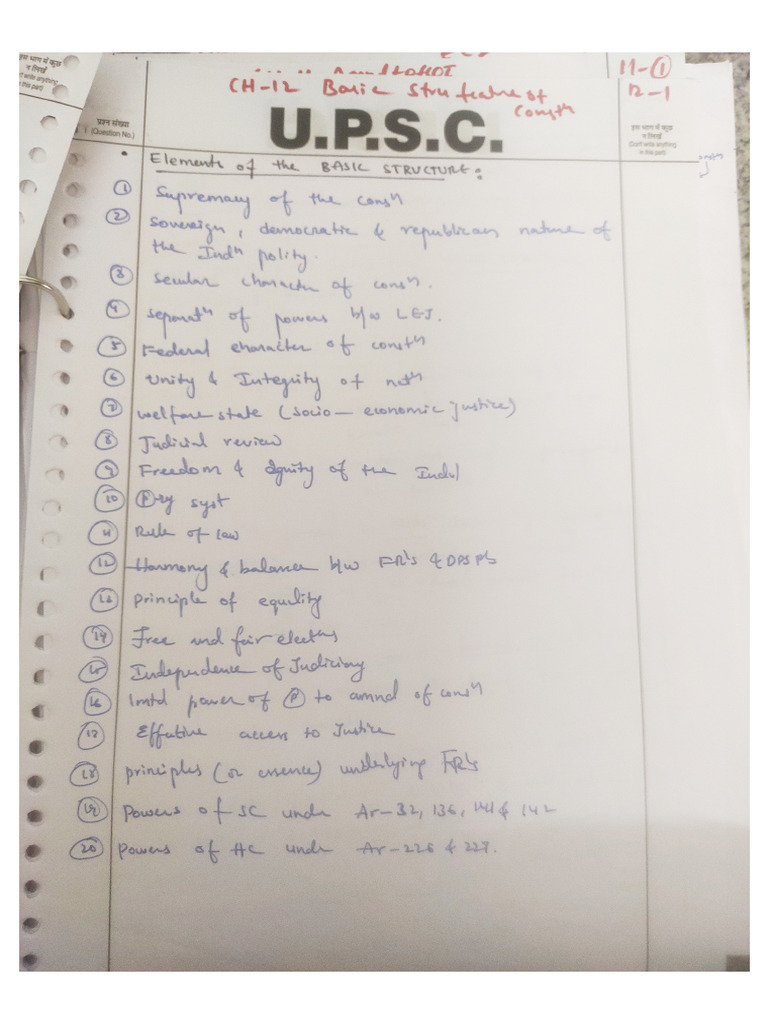 इस भाग में कुछ
न लिखें
n't write anything
in this part)
11-①
CH-12 Basic Structure of
Constn
12-1
U.P.S.C.
प्रश्न संख्या
(Question No.)
इस भाग में कुछ
न लिखें
(Don't write anything
in this part)
• Elements of the BASIC STRUCTURE:
① Supremacy of the consn
② Sovereign, democratic & republican nature of
the Indn polity.
③ Secular character of consn.
④ Separatn of powers b/w LEJ.
⑤ Federal character of constn
⑥ Unity & Integrity of natn
⑦ welfare state (socio-economic justice)
⑧ Judicial review
⑨ Freedom & dgnity of the Indvl
⑩ Ⓟ-ry syst
⑪ Rule of law
⑫ Harmony & balance b/w FR's & DPSP's
⑬ principle of equality
⑭ Free and fair electns
⑮ Independence of Judiciary
⑯ lmtd power of Ⓟ to amnd of consn
⑰ Effective access to Justice
⑱ principles (or essence) underlying FR's
⑲ Powers of SC under Ar-32, 136, 141 & 142
⑳ Powers of HC under Ar-226 & 227.